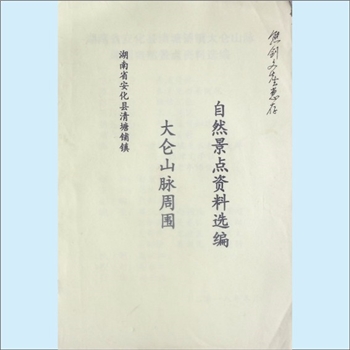 湖南省安化县清塘铺镇
大仑山脉周围
自然景点资料选编
惠存